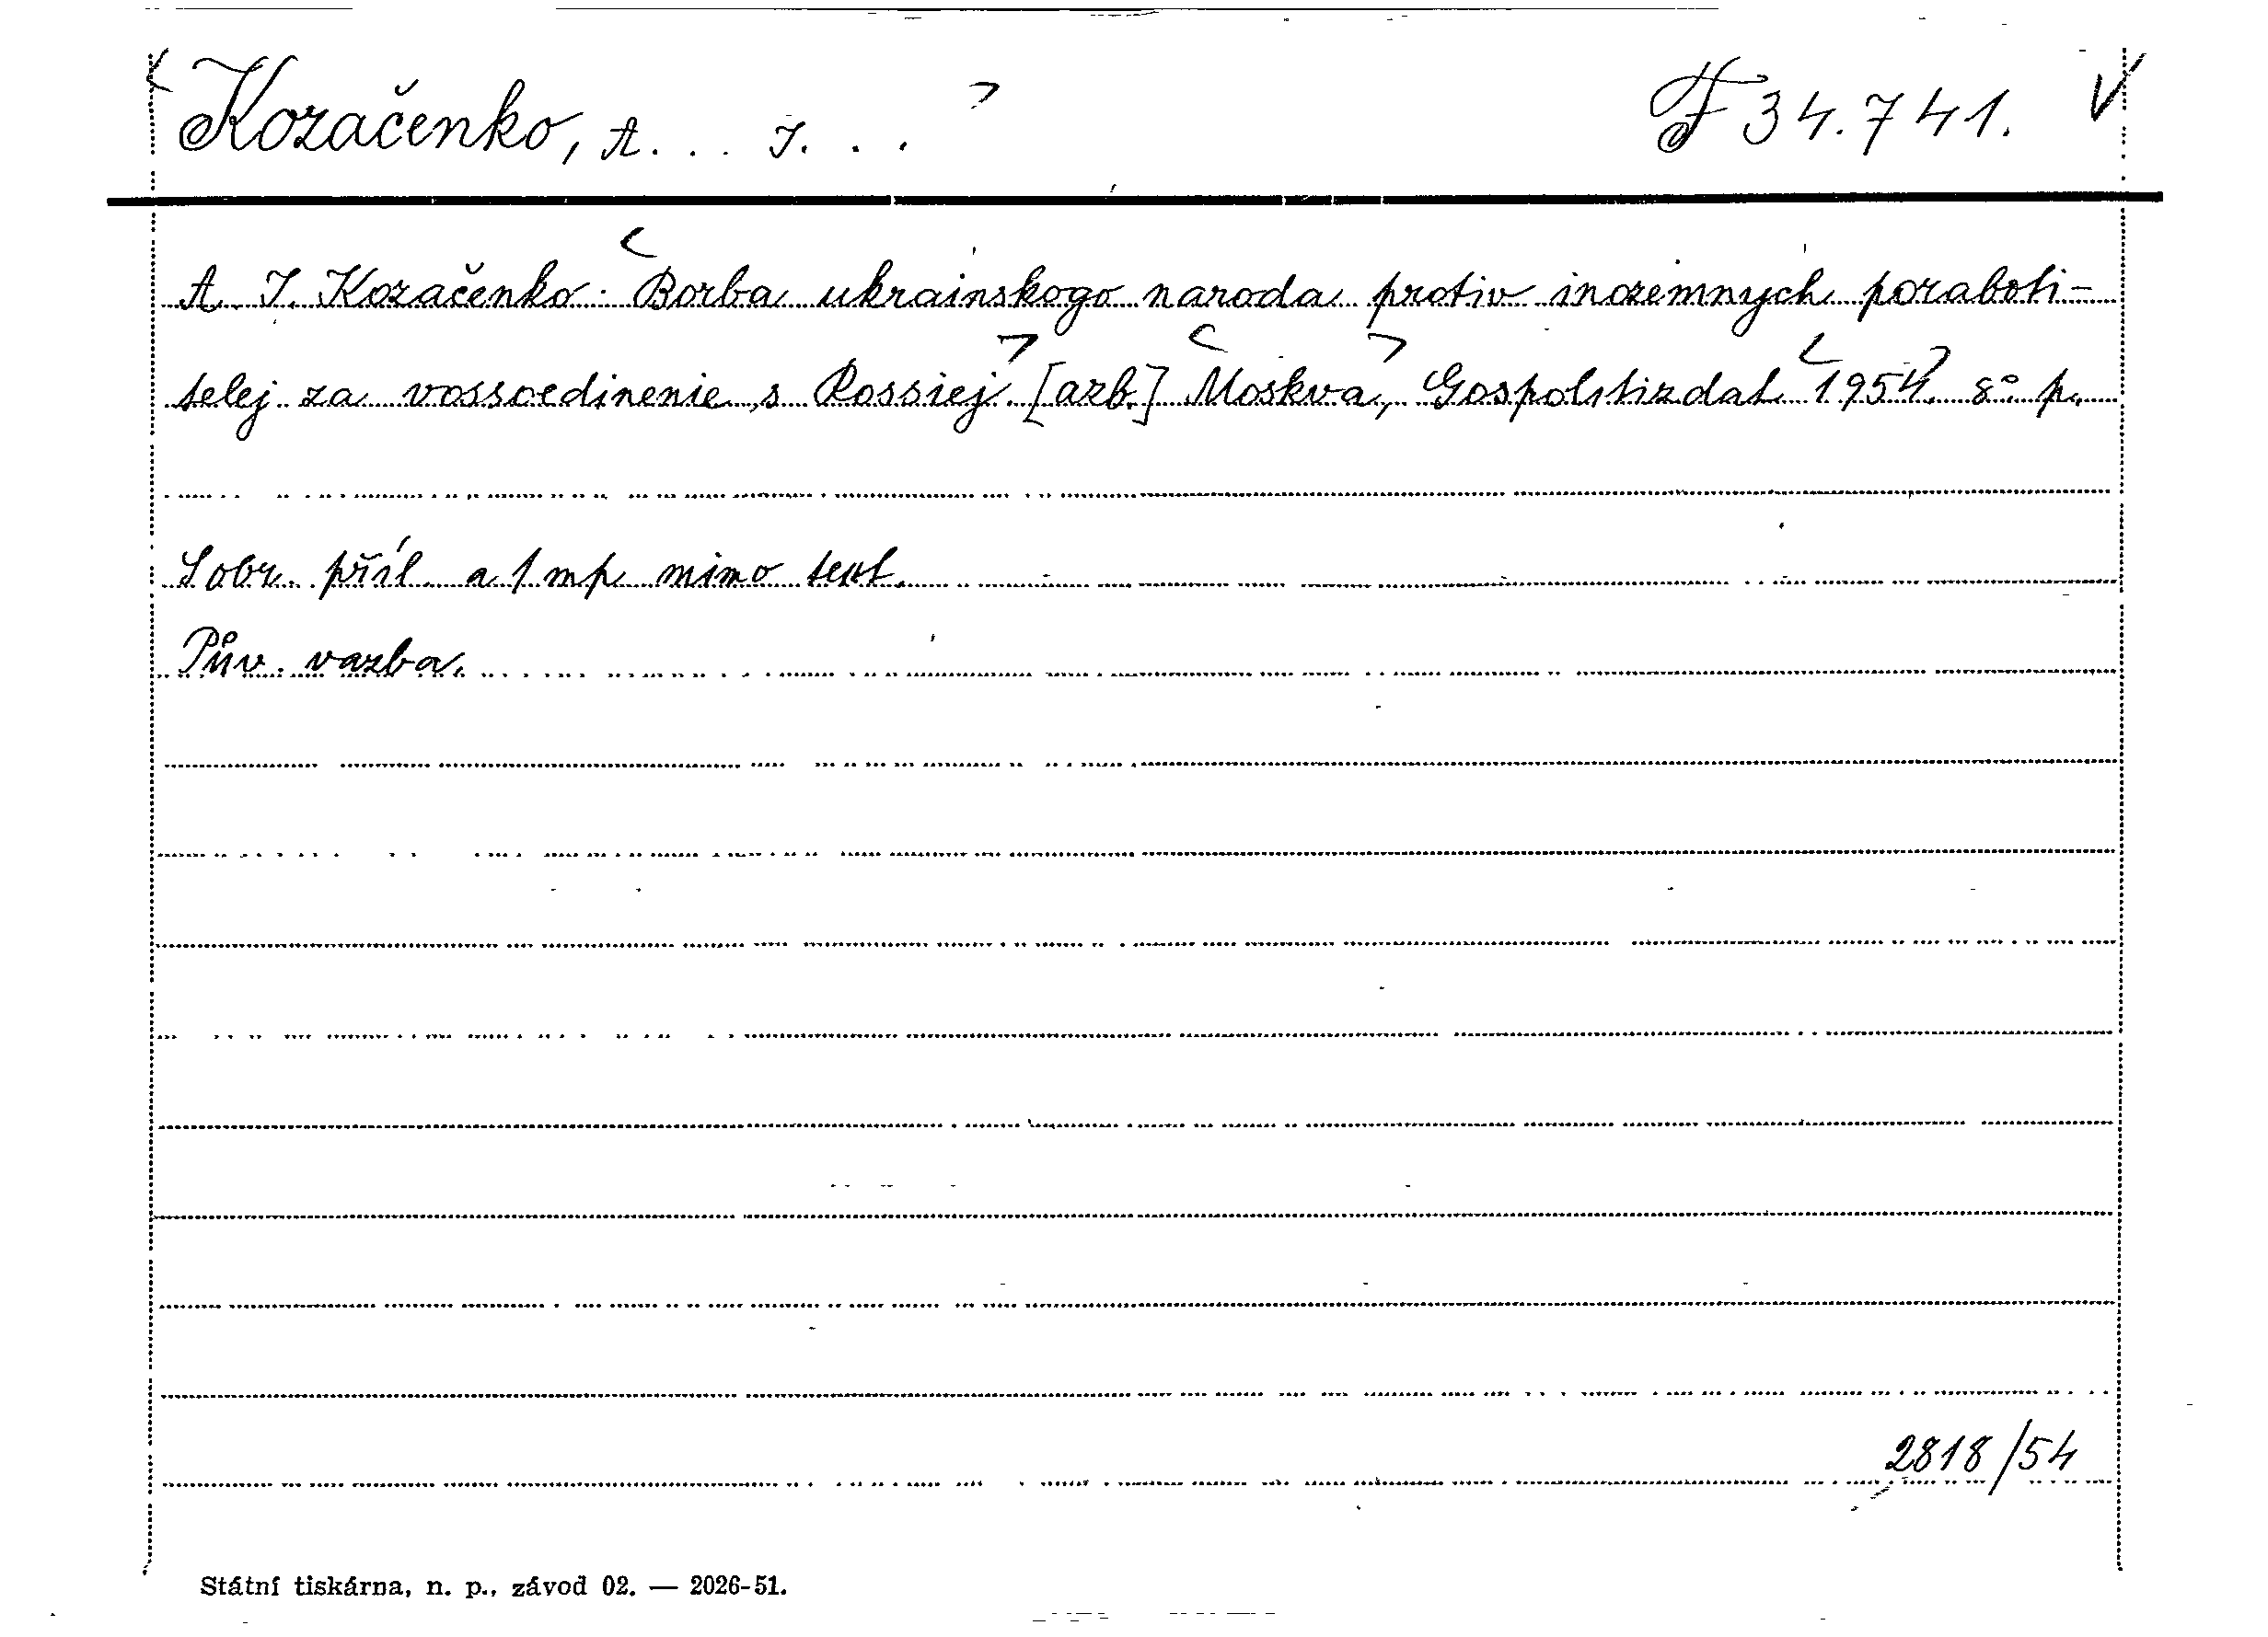 < Kozačenko, A. . . I. . . > F 34.741. V
A. I. Kozačenko: < Borba ukrainskogo naroda protiv inozemnych poraboti-
telej za vossoedinenie s Rossiej. > [azb.] < Moskva, > Gospolitizdat < 1954. > 8° p.
S obr. příl. a 1 mp. mimo text.
Pův. vazba.
2818/54
Státní tiskárna, n. p., závod 02. — 2026-51.